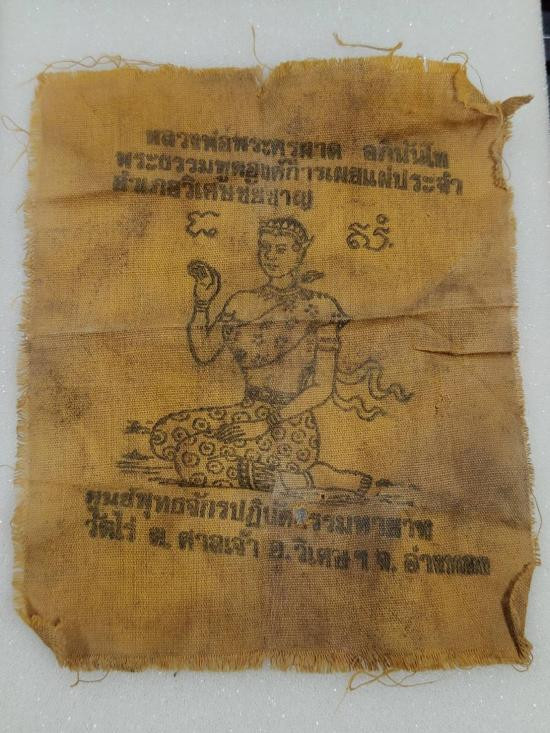 หลวงพ่อพระครูผาด อภินันโท
พระธรรมทูตองค์การเผยแผ่ประจำ
อำเภอวิเศษชัยชาญ
ศูนย์พุทธจักรปฏิบัติธรรม
วัดไร่ ต. ศาลเจ้า อ.วิเศษฯ จ. อ่างทอง